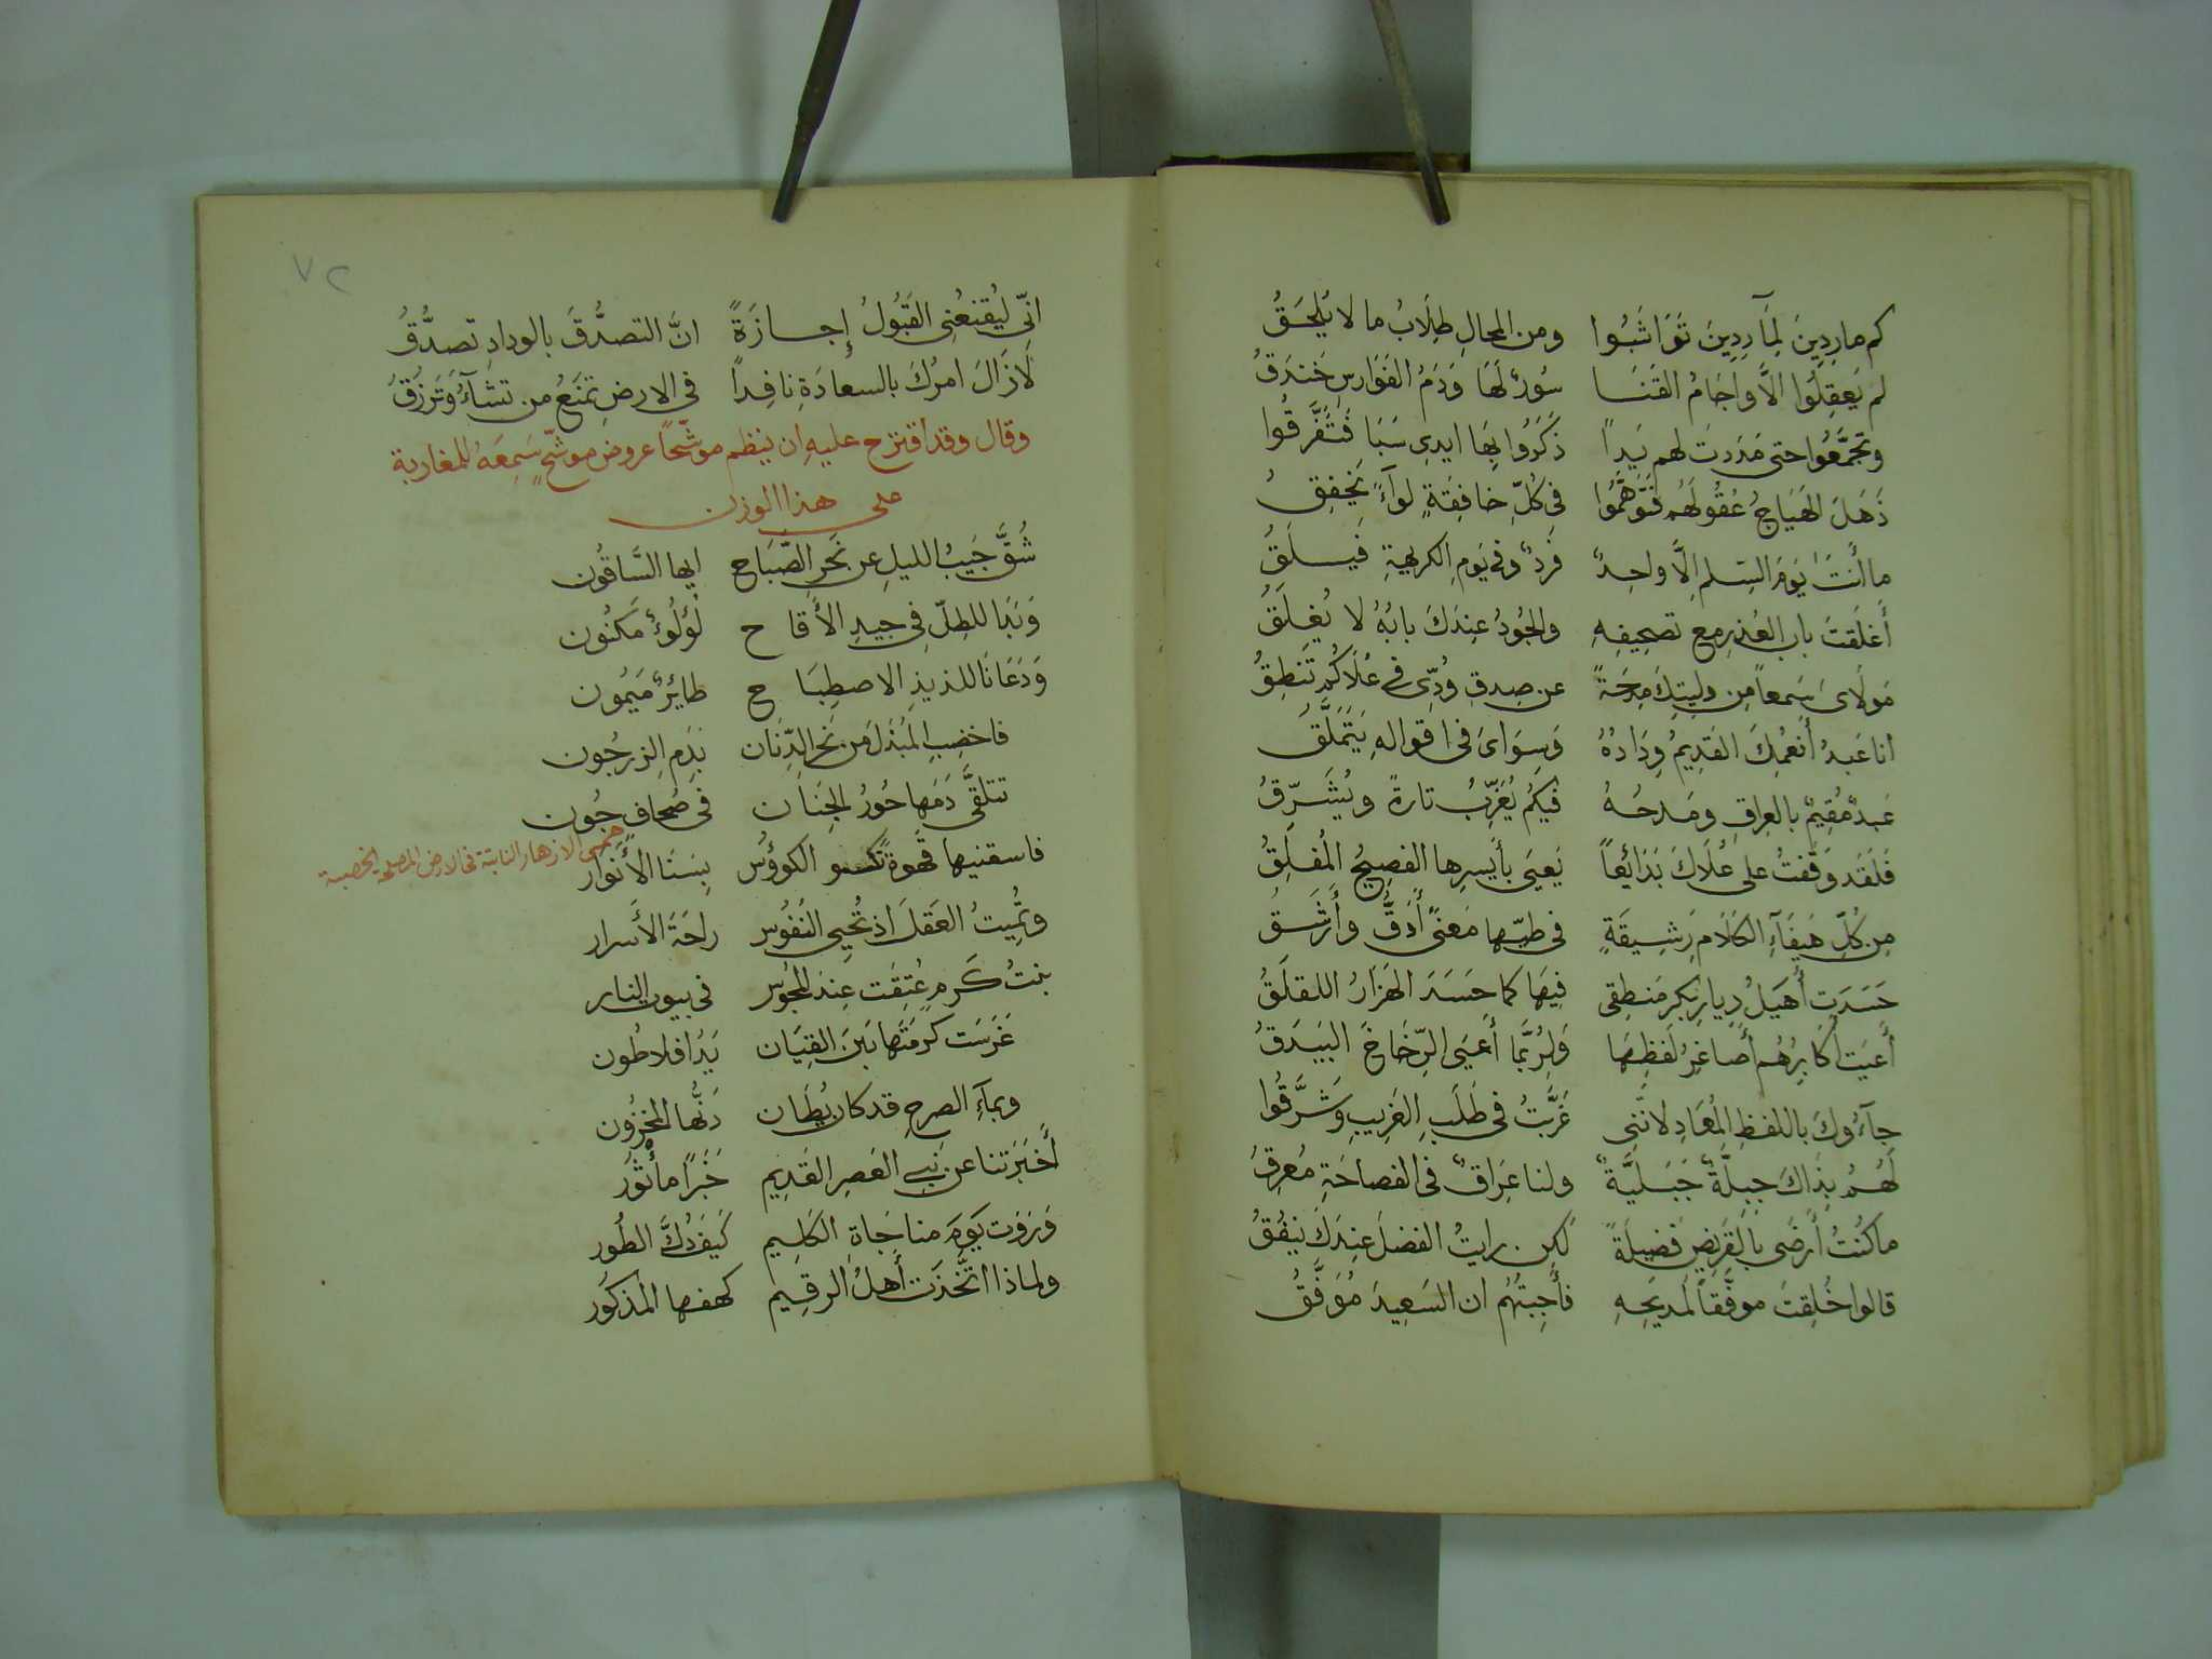 كم مارِدِينَ لِمَآرِدِينَ تَوَاثَبُوا ومن المحالِ طِلَابُ ما لا يُلحَقُ
لم يَعقِلُوا الاَّ وآجَامُ القَنَا سُورٌ لَهَا وَدَمُ الفَوَارسِ خَندَقُ
وتجَمَّعُوا حتى مَدَدتَ لهم يَداً ذَكَرُوا بِهَا ايدِي سَبَا فَتَفَرَّقُوا
ذَهَلَ الهَيَاجُ عُقُولَهُم فَتَوَهَّمُوا في كُلِّ خافِقَةٍ لوآءً يَخفِقُ
ما أنتَ يَومَ السِلمِ الاَّ واحِدٌ فَردٌ وفي يَومِ الكريهةِ فَيلَقُ
أَغلَقتَ باب العُذرِ مع تصحِيفِهِ والجُودُ عِندَكَ بابُهُ لا يُغلَقُ
مَولَايَ سَمعاً مِن وليتِكَ مِدحَةً عن صِدقِ وُدِّي في عُلَاكُم تَنطِقُ
انا عَبدُ أَنعُمِكَ القَدِيمُ وِدَادُهُ وَسِوَايَ في اقوالِهِ يَتَمَلَّقُ
عَبدٌ مُقِيمٌ بالعِراقِ ومَدحُهُ فيكُم يُغَرِّبُ تارةً ويُشَرِّقُ
فَلَقَد وَقَفتُ على عُلَاكَ بَدَائِعاً يَعيَى بأَيسِرِها الفصِيحُ المُفلِقُ
مِن كُلِّ هَيفَآءِ الكَلَامِ رَشِيقَةٍ في طيّها مَعنًى أَدَقُّ وأَرشَقُ
حَسَدَت أُهَيلُ دِيارِ بَكرٍ مَنطِقي فِيهَا كما حَسَدَ الهَزَارُ اللقلَقُ
أَعيَت أَكَابِرُهُم أَصَاغِرُ لَفظِهَا وَلَرُبَّمَا أَعيَى الرِّخَاخَ البَيدَقُ
جآءُوكَ باللفظِ المُعَادِ لانَّني غَرَّبتُ في طَلَبِ الغَرِيبِ وَشَرَّقُوا
لَهُمُ بِذَاكَ جِبِلَّةٌ جَبَليَّةٌ ولنا عِرَاقٌ في الفصاحَةِ مُعرِقُ
ما كُنتُ أَرضَى بالقَرِيضِ فَضِيلَةً لكن رايتُ الفضلَ عِندَكَ يَنفُقُ
قالوا خُلِقتَ موفَّقاً لمَديحِهِ فأَجبتُهُم ان السَعِيدَ مُوَفَّقُ
٧٢
انّي ليُقنعُني القَبُولُ إجازَةً انَّ التصدُّقَ بالودادِ تصدُّقُ
لَازَالَ امرُكَ بالسعادَةِ نافِداً في الارضِ تمنَعُ من تشآءُ وَتَرزُقُ
وقال وقد اقترح عليهِ ان ينظم موشّحاً عروض موشّحٍ سَمِعَهُ للمغاربة
على هذا الوزن
شُقَّ جَيبُ الليلِ عن نَحرِ الصَّبَاح ايها السَّاقُون
وَبَدَا للطلّ في جيدِ الأَقاح لُؤلُوءٌ مَكنُون
وَدَعَانَا للذيذِ الاصطِبَاح طائِرٌ مَيمُون
فاخضِبِ المبزَلَ من نَحرِ الدِّنَان بِدَمِ الزرجُون
تتلقَّى دَمَها حُورُ الجِنَان في صُحافٍ جُون
فاسقنيها قهوةً تكسو الكوؤُس بِسَنَا الأَنوار
هي الازهار النابتة في الارض الخصبة
وتُمِيتُ العَقلَ اذ تُحيي النُفُوس راحَةُ الأَسرار
بنتُ كَرمٍ عُتِقَت عِندَ المجُوس في بيوت النار
غَرَسَت كَرمَتَها بَينَ القِيَان يَدُ افلاطُون
وبمآءِ الصرحِ قد كان يُطَان دَنُّها المخزُون
أَخبَرَتنا عن بَني العَصرِ القَدِيم خَبَراً مأثُور
وَرَوَت يَومَ مناجَاةِ الكَلِيم كَيفَ دُكَّ الطُور
ولماذا اتَّخذَت أَهلُ الرقِيم كهفها المذكُور